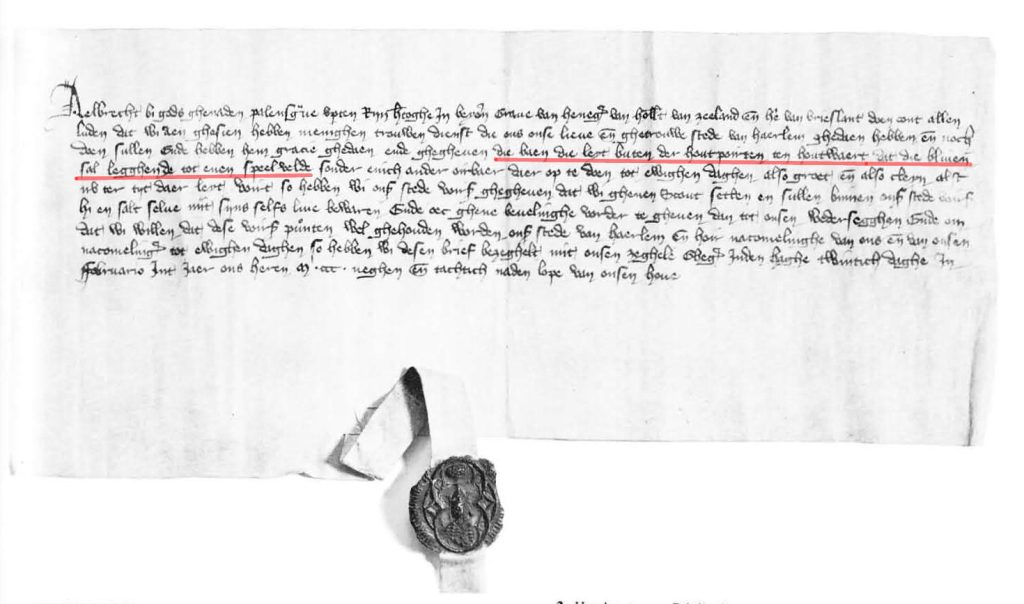 Aelbrecht bi gods ghenaden palensgue upten Rijn hertoghe In beyern Graue van heneg van hollt van zeeland en he van vrieslant doen cont allen
luden dat wi aen ghesien hebben menighen trouwen dienst die ons onse lieue en ghetrouwe stede van haerlem ghedaen hebben en noch
doen sullen Ende hebben hem gracie ghedaen ende ghegheuen die baen die leyt buten der houtpoirten ten houtwaert dat die bliuen
sal legghende tot enen speelvelde sonder enich ander oirbaer daer op te doen tot ewighen daghen also groet en also cleyn als
nv ter tyt daer leyt voirt so hebben wi onss stede voirss ghegheuen dat wi ghenen Scout setten en sullen binnen onss stede voirss
hi en salt selue mit syns selfs liue bewaren Ende oec ghene beuelinghe vorder te gheuen dan tot onsen wedersegghen Ende om
dat wi willen dat dese voirss punten wel ghehouden worden onss stede van haerlem en hoir nacomelinghe van ons en van onsen
nacomelinge tot ewighen daghen so hebben wi desen brief beseghelt mit onsen zeghele Ghegh Inden haghe twintich daghe In
ffebruario Int Jaer ons heren M ccc neghen en tachtich naden lope van onsen houe